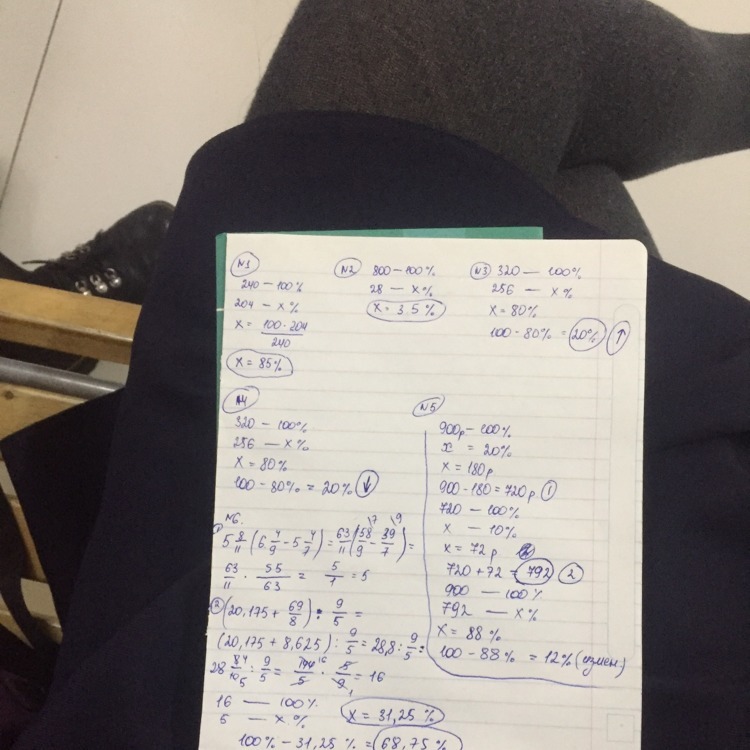 N1
240 — 100%
204 — x%
x = 100·204/240
x = 85%
N2
800 — 100%
28 — x%
x = 3,5%
N3
320 — 100%
256 — x%
x = 80%
100 - 80% = 20% ↑
N4
320 — 100%
256 — x%
x = 80%
100 - 80% = 20% ↓
N5
900р — 100%
x = 20%
x = 180р
900 - 180 = 720р ①
720 — 100%
x — 10%
x = 72р
720 + 72 = 792 ②
900 — 100%
792 — x%
x = 88%
100 - 88% = 12% (измен)
N6.
5 8/11 (6 4/9 - 5 4/7) = 63/11 (58/9 \7 - 39/7 \9) =
63/11 · 55/63 = 5/1 = 5
② (20,175 + 69/8) : 9/5 =
(20,175 + 8,625) : 9/5 = 28,8 : 9/5 =
: 9/5 = 144/5 · 5/9 = 16
16 — 100%
5 — x%
x = 31,25%
100% - 31,25% = 68,75%